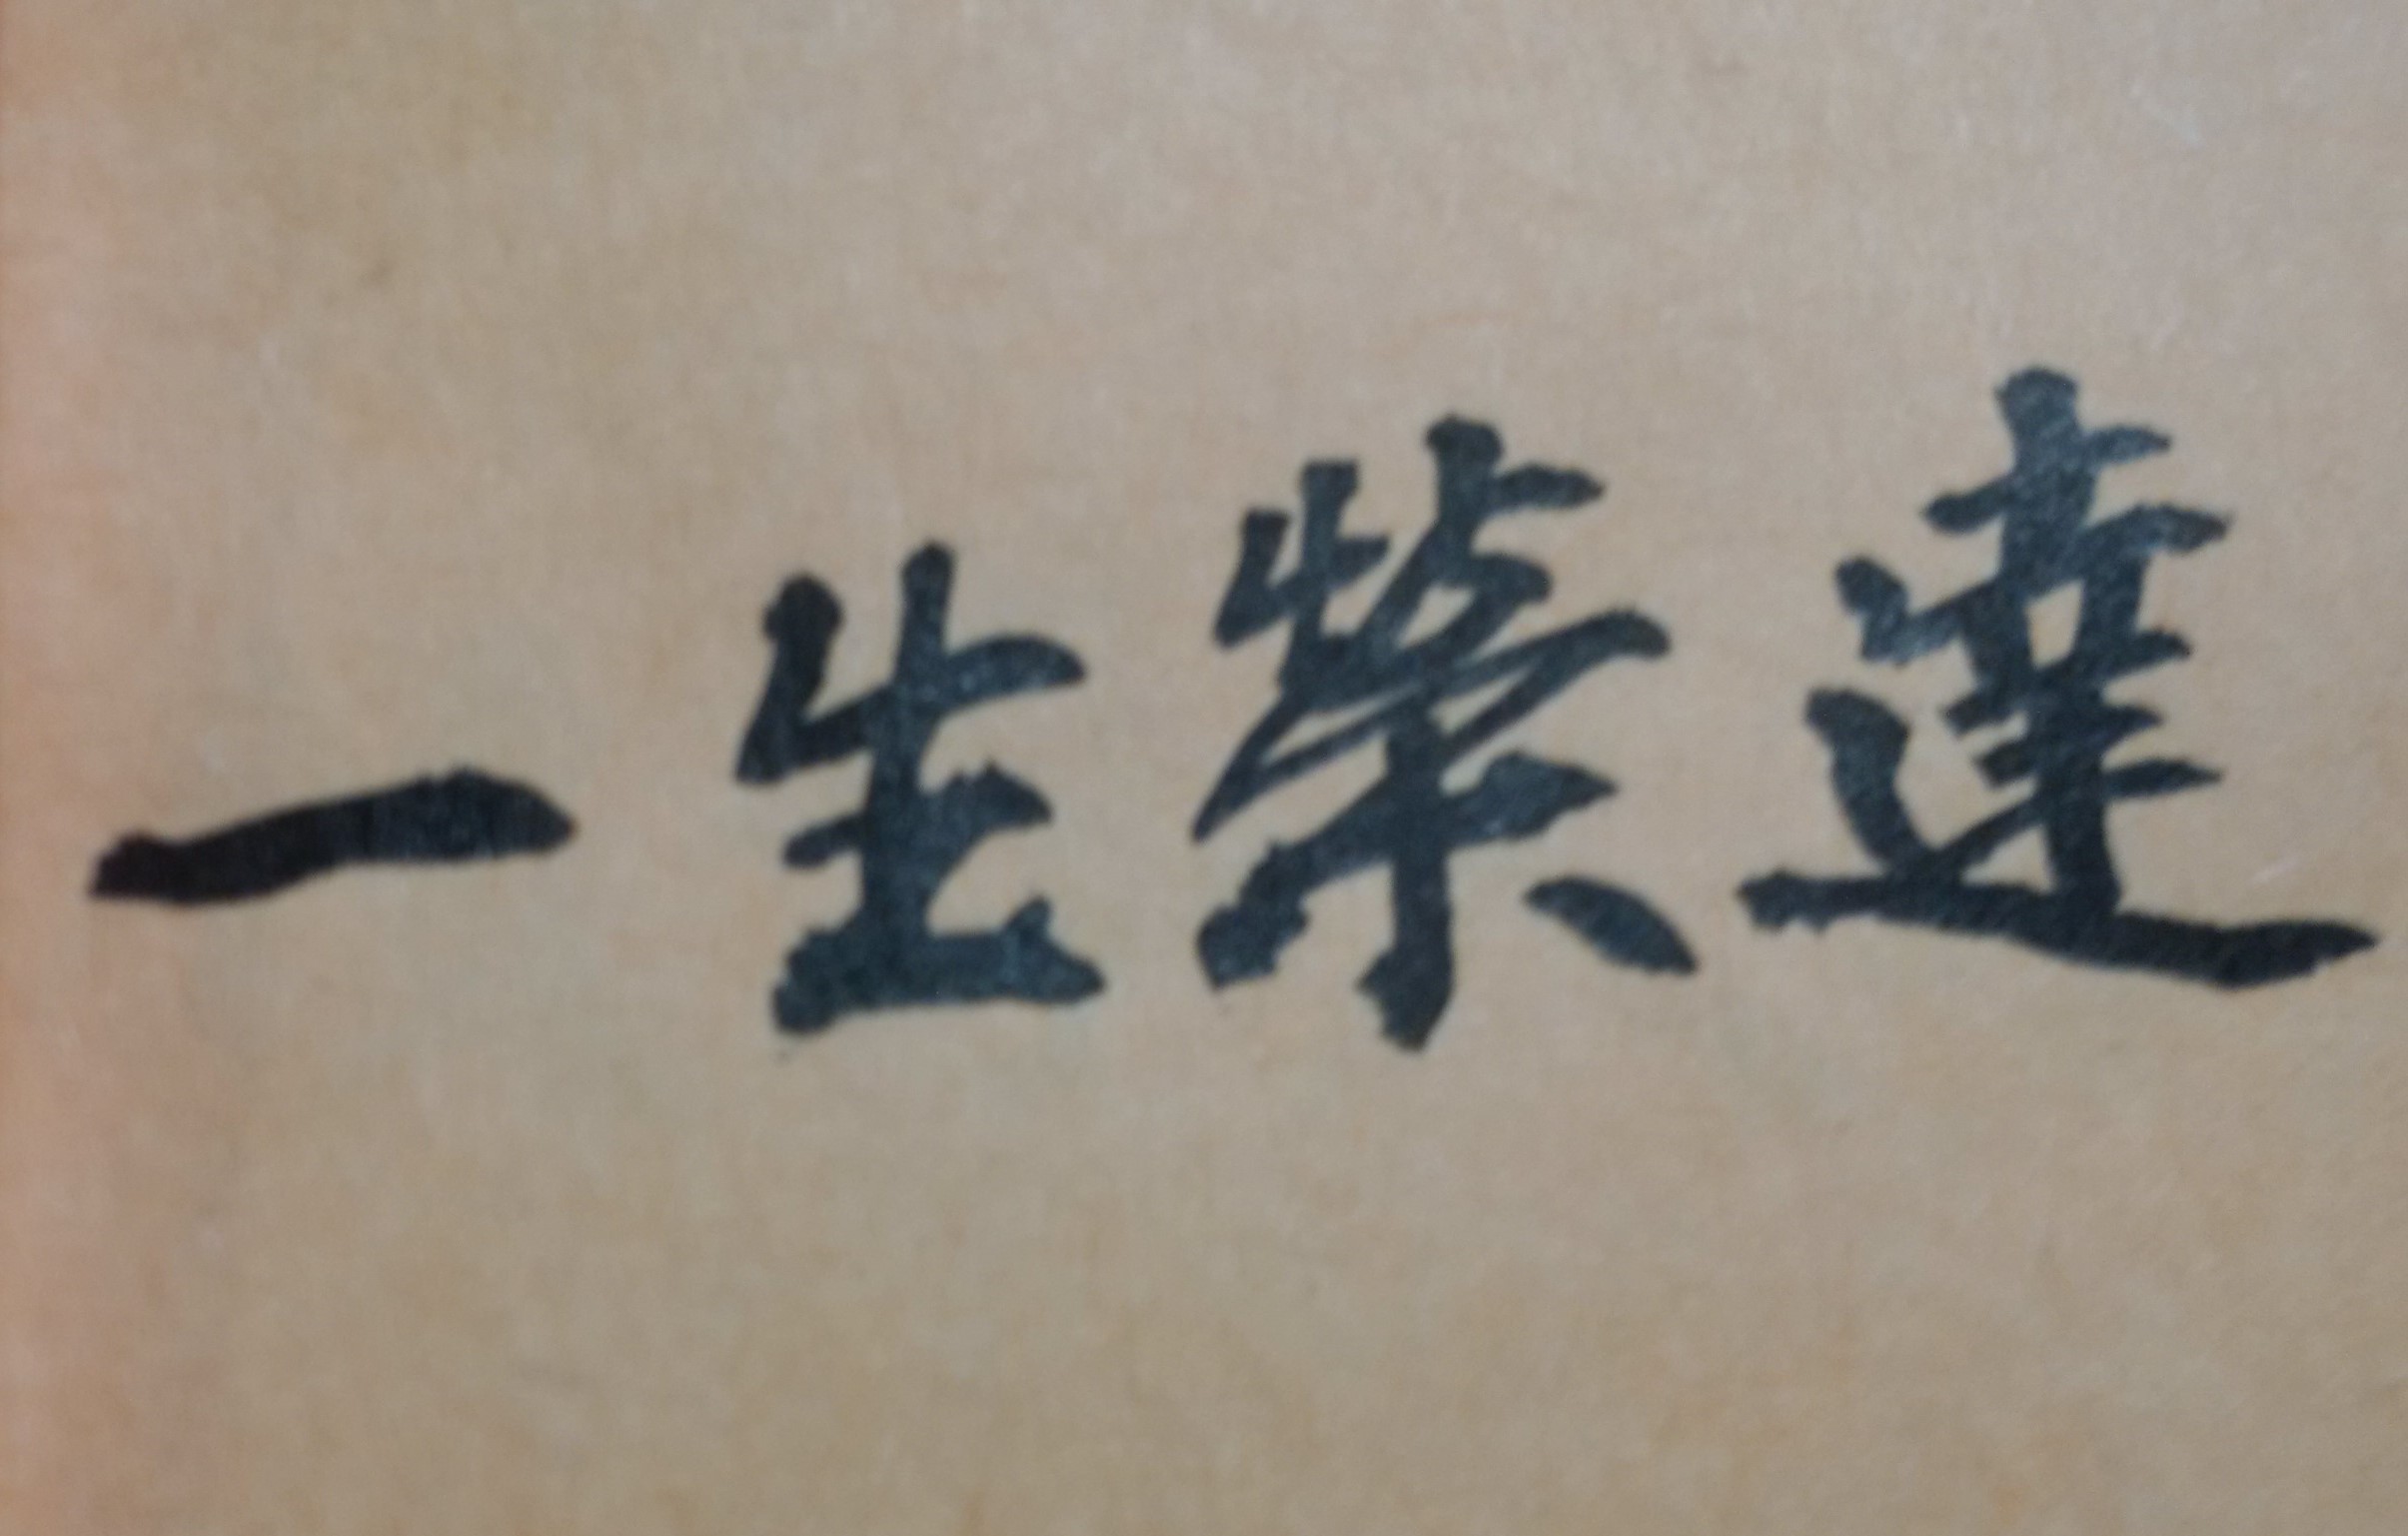 一生榮達